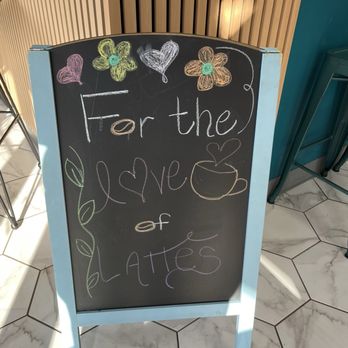 For the
love
of
LATTES